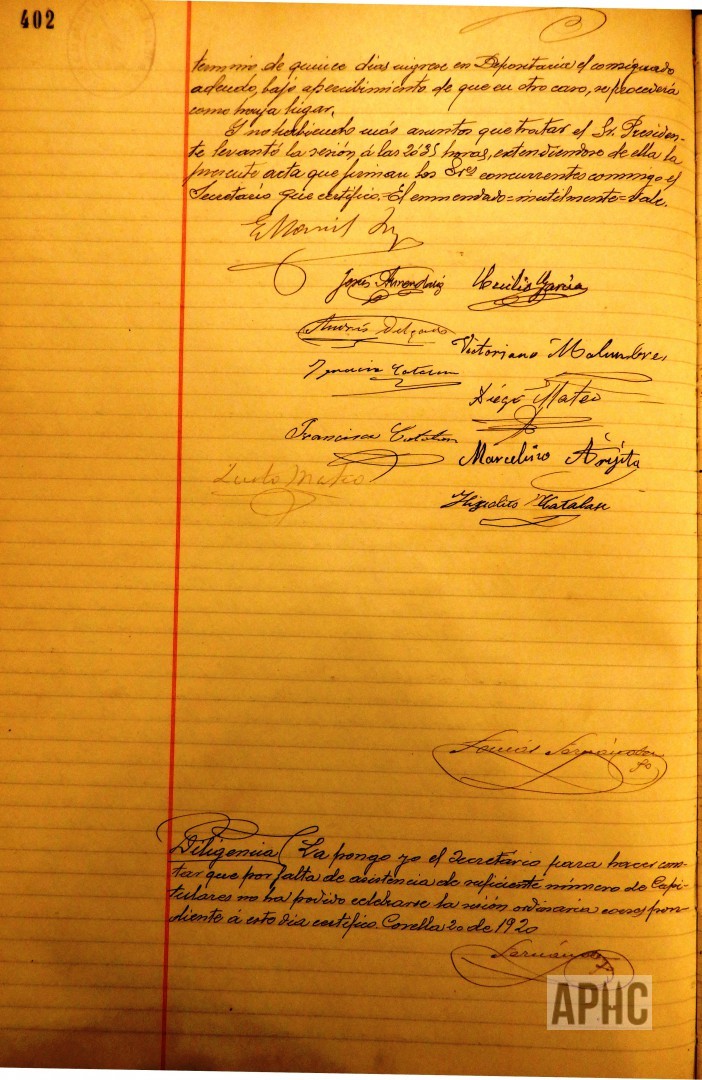 402
termino de quince dias ingrese en Depositaria el consignado
adeudo, bajo apercibimiento de que en otro caso, se procederia
como haya lugar.
Y no habiendo más asuntos que tratar el Sr. Presiden-
te levantó la sesión á las 20'35 horas, extendiendose de ella la
presente acta que firman los Sres concurrentes conmigo el
Secretario que certifico.=El enmendado=inutilmente=Vale.
Cecilio Garcia
Andrés Delgado
Victoriano Malumbres
Diego Mateo
Francisco Catalan
Marcelino Arijita
Mateo
Hipolito Catalan
Fernández
Diligencia (La pongo yo el Secretário para hacer cons-
tar que por falta de asistencia de suficiente número de Capi-
tulares no ha podido celebrarse la sesión ordinaria corespon-
diente á este dia certifico. Corella 20 de 1920
Fernández
APHC